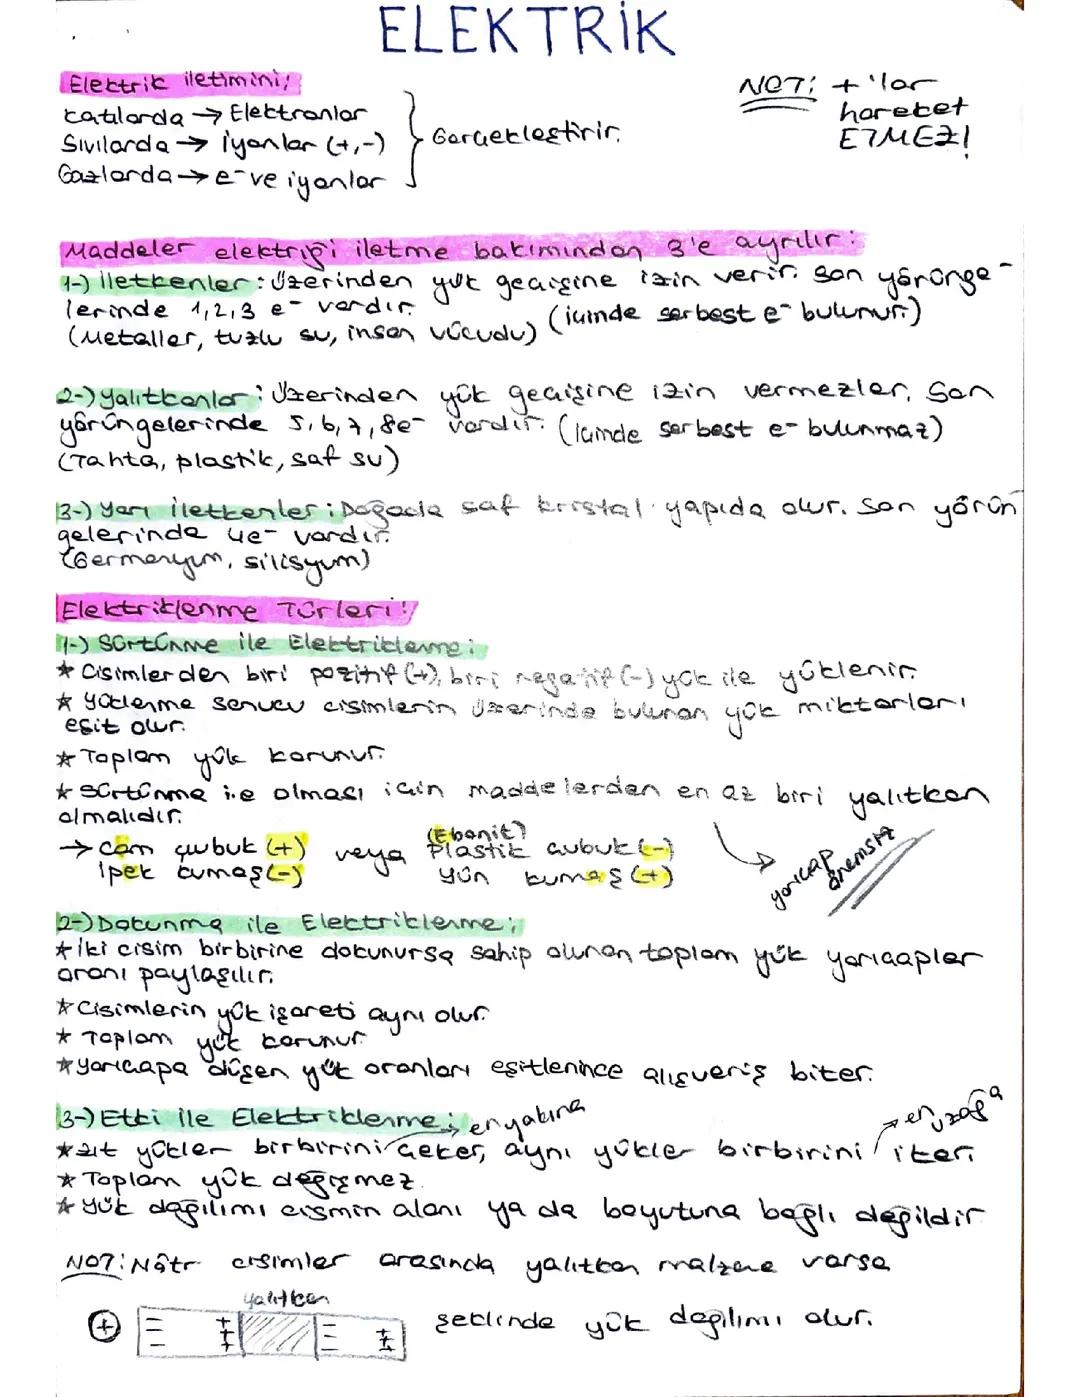 ELEKTRİK
Elektrik iletimini;
Katılarda → Elektronlar
Sıvılarda → İyonlar (+,-)
Gazlarda → e⁻ ve iyonlar
Gerçekleştirir.
NOT: + 'lar
hareket
ETMEZ!
Maddeler elektriği iletme bakımından 3'e ayrılır:
1-) İletkenler: Üzerinden yük geçişine izin verir. Son yörünge-
lerinde 1,2,3 e⁻ vardır. (içinde serbest e⁻ bulunur.)
(Metaller, tuzlu su, insan vücudu)
2-) Yalıtkanlar: Üzerinden yük geçişine izin vermezler. Son
yörüngelerinde 5,6,7,8e⁻ vardır. (içinde serbest e⁻ bulunmaz)
(Tahta, plastik, saf su)
3-) Yarı İletkenler: Doğada saf kristal yapıda olur. Son yörün
gelerinde 4e⁻ vardır.
(Germenyum, silisyum)
Elektriklenme Türleri:
1-) Sürtünme ile Elektriklenme;
* Cisimlerden biri pozitif (+), biri negatif (-) yük ile yüklenir.
* Yüklenme sonucu cisimlerin üzerinde bulunan yük miktarları
eşit olur.
* Toplam yük korunur.
* Sürtünme ile olması için maddelerden en az biri yalıtkan
olmalıdır.
→ Cam çubuk (+) veya (Ebonit) Plastik çubuk (-)
İpek kumaş (-) Yün kumaş (+)
yarıçap
önemsiz
2-) Dokunma ile Elektriklenme;
* İki cisim birbirine dokunursa sahip olunan toplam yük yarıçaplar
oranı paylaşılır.
* Cisimlerin yük işareti aynı olur.
* Toplam yük korunur.
* Yarıçapa düşen yük oranları eşitlenince alışveriş biter.
3-) Etki ile Elektriklenme;
en yakına
en uzağa
* Zıt yükler birbirini çeker, aynı yükler birbirini iter.
* Toplam yük değişmez.
* Yük dağılımı cismin alanı ya da boyutuna bağlı değildir
NOT: Nötr cisimler arasında yalıtkan malzeme varsa
yalıtkan
şeklinde yük dağılımı olur.